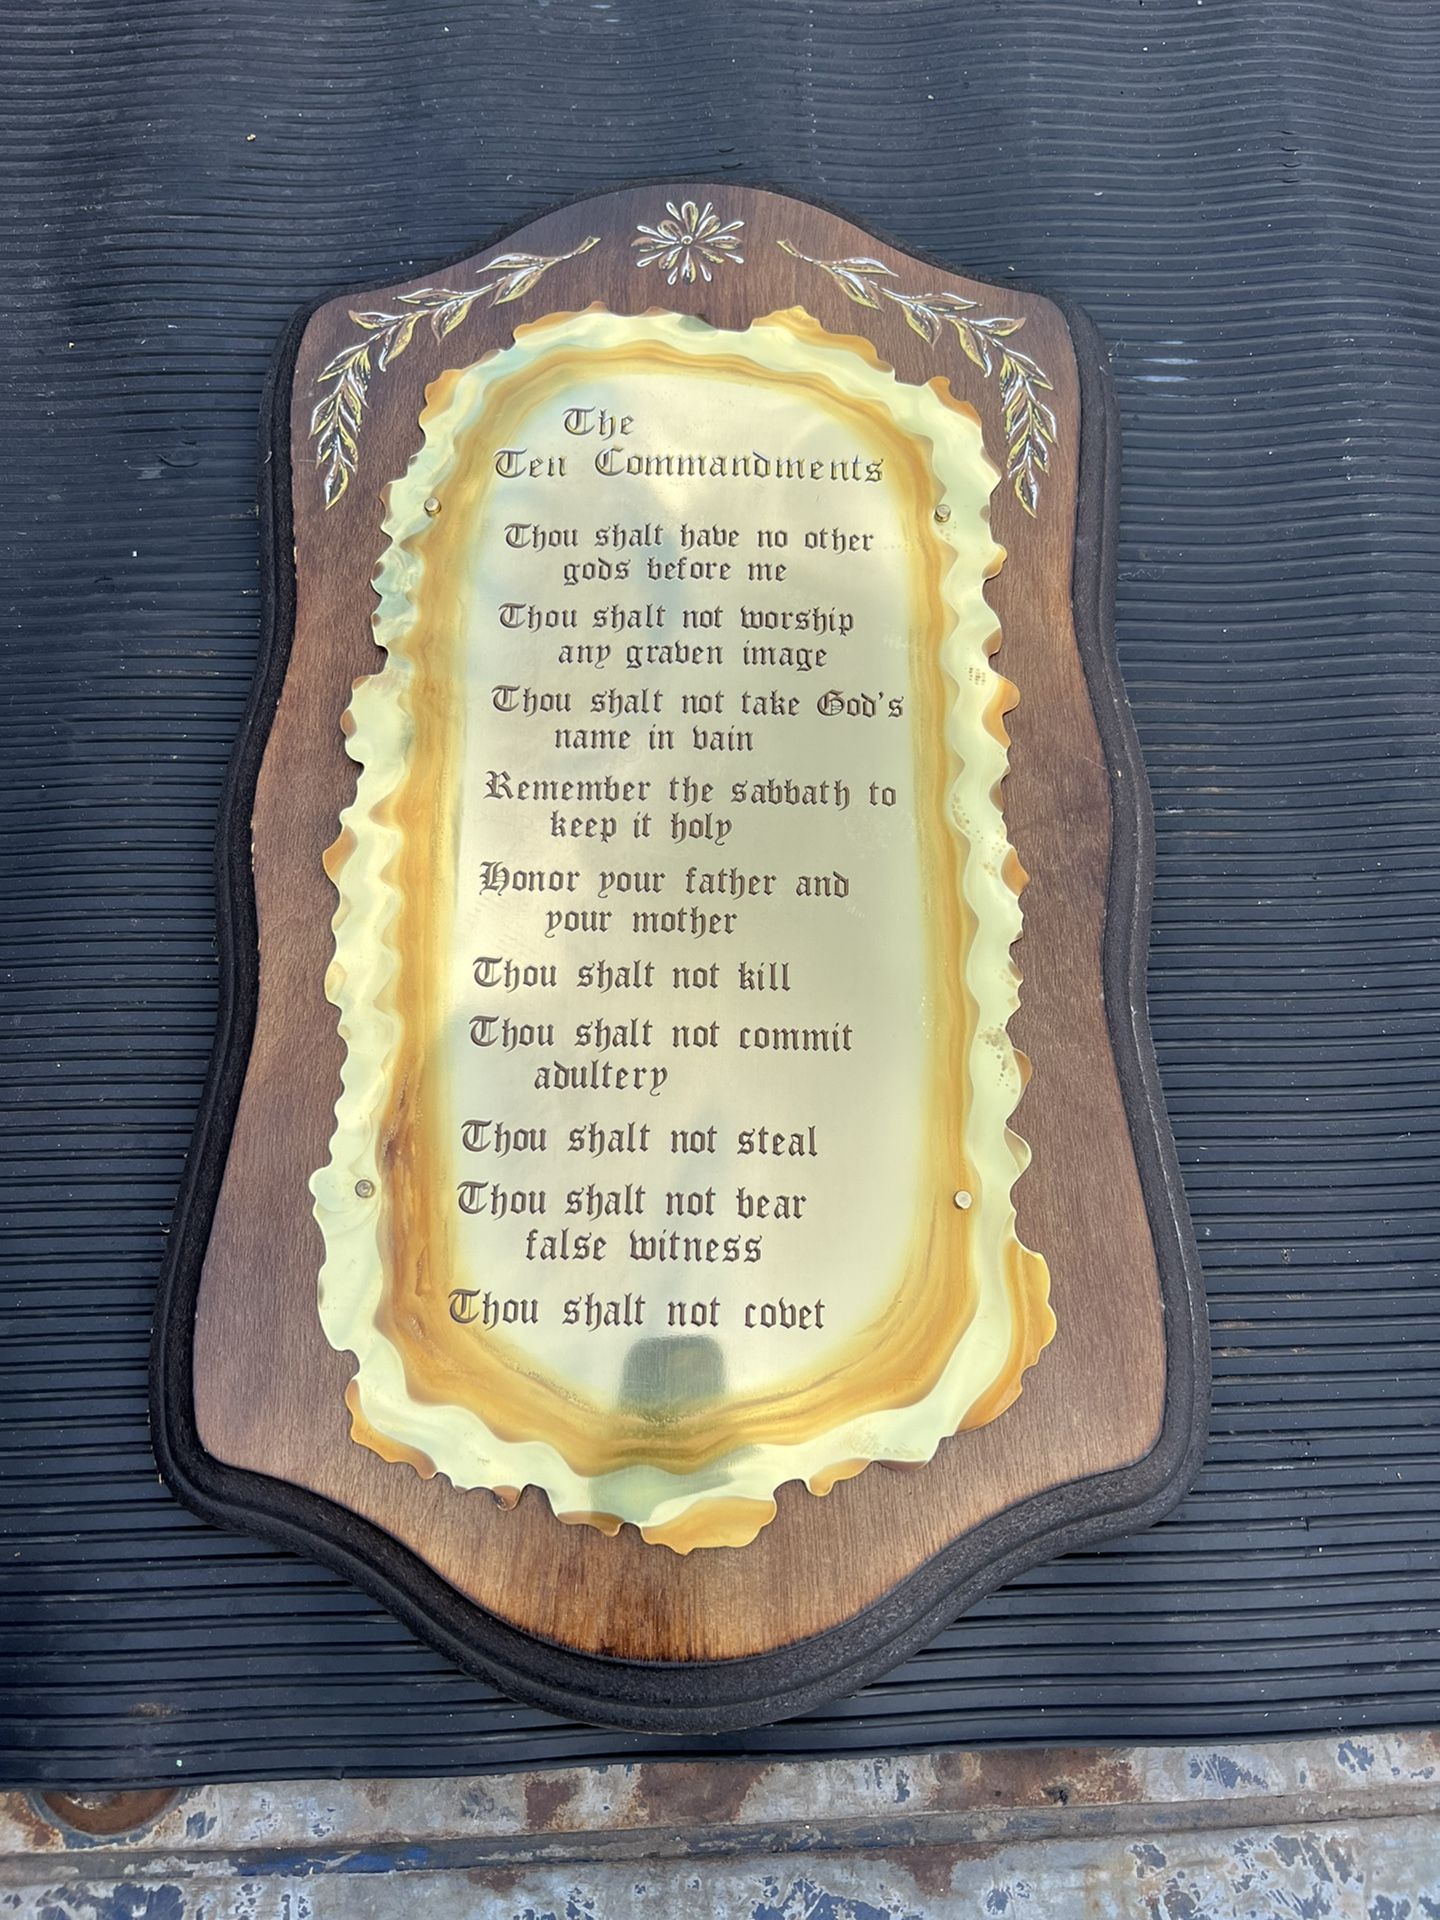 The
Ten Commandments
Thou shalt have no other
gods before me
Thou shalt not worship
any graven image
Thou shalt not take God's
name in vain
Remember the sabbath to
keep it holy
Honor your father and
your mother
Thou shalt not kill
Thou shalt not commit
adultery
Thou shalt not steal
Thou shalt not bear
false witness
Thou shalt not covet